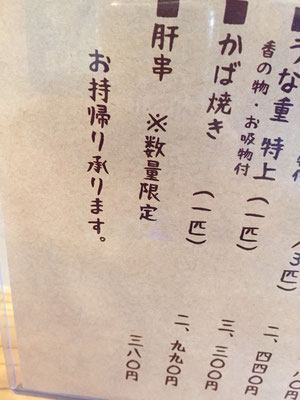 な重 特上（一匹） 三、三〇〇円
香の物・お吸物付
二、四四〇円
■かば焼き（一匹） 二、九九〇円
■肝串 ※数量限定 三八〇円
お持帰り承ります。